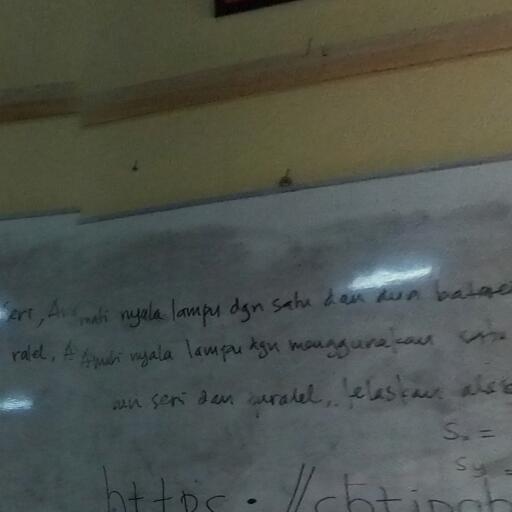 seri, Amati nyala lampu dgn satu dan dua
ralel, Amati nyala lampu dgn menggunakan satu
an seri dan paralel, Jelaskan
Sx =
Sy =
https://cbt